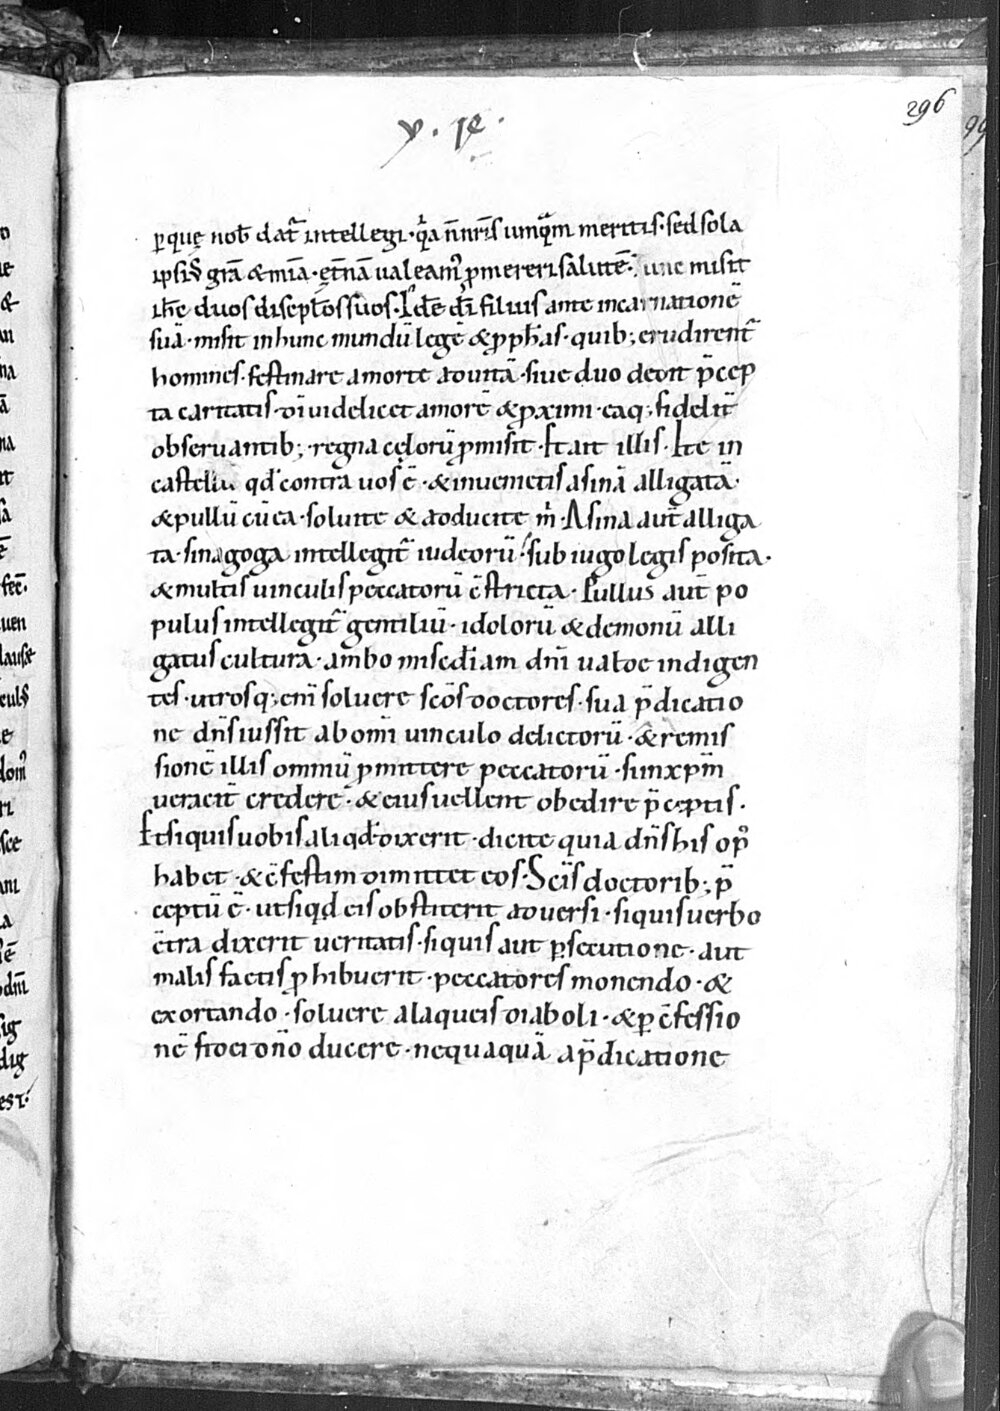 296
ꝑque̜ nob̄ dat̄ intellegi · qͥa n̄ nr̄is umqͣm meritis · sed sola
ipsiꝰ grā & mīa · et̜nā ualeamꝰ ꝓmereri salutē · Tunc misit
ih̄c duos discipl̄os suos · Id ē dī filius ante incarnationē
suā · misit in hunc mundū legē & ꝓph̄as · quib; erudirent̄
homines · festinare a morte ad uitā · siue duo dedit p̄cep
ta caritatis · dī uidelicet amorē & ꝓximi · eaq; fidelit̄
obseruantib; · regna ce̜lorū ꝓmisit · Et ait illis · Ite in
castellū qd̄ contra uos ē · & inuenietis asinā alligatā ·
& pullū cū ea · soluite & adducite m̄ · Asina aut̄ alliga
ta · sinagoga intellegit̄ iudeorū · sub iugo legis posita ·
& multis uinculis peccatorū c̄stricta · Pullus aut̄ po
pulus intellegit̄ gentiliū · idolorū & demonū alli
gatus cultura · ambo misericdiam dn̄i ualde indigen
tes · utrosq; enī soluere scōs doctores · sua p̄dicatio
ne dn̄s iussit ab om̄i uinculo delictorū · & remis
sionē illis omniū ꝓmittere peccatorū · si in xp̄m
ueracit̄ credere · & eius uellent obedire p̄ceptis ·
Et si quis uobis aliqd̄ dixerit · dicite quia dn̄s his opꝰ
habet · & c̄festim dimittet eos · Sc̄is doctorib; p̄
ceptū ē · ut siqd̄ eis obstiterit aduersi · si quis uerbo
c̄tra dixerit ueritatis · si quis aut ꝑsecutione · aut
malis factis ꝓhibuerit · peccatores monendo · &
exortando · soluere a laqueis diaboli · & ꝑ c̄fessio
nē ducere · nequaquā a p̄dicatione